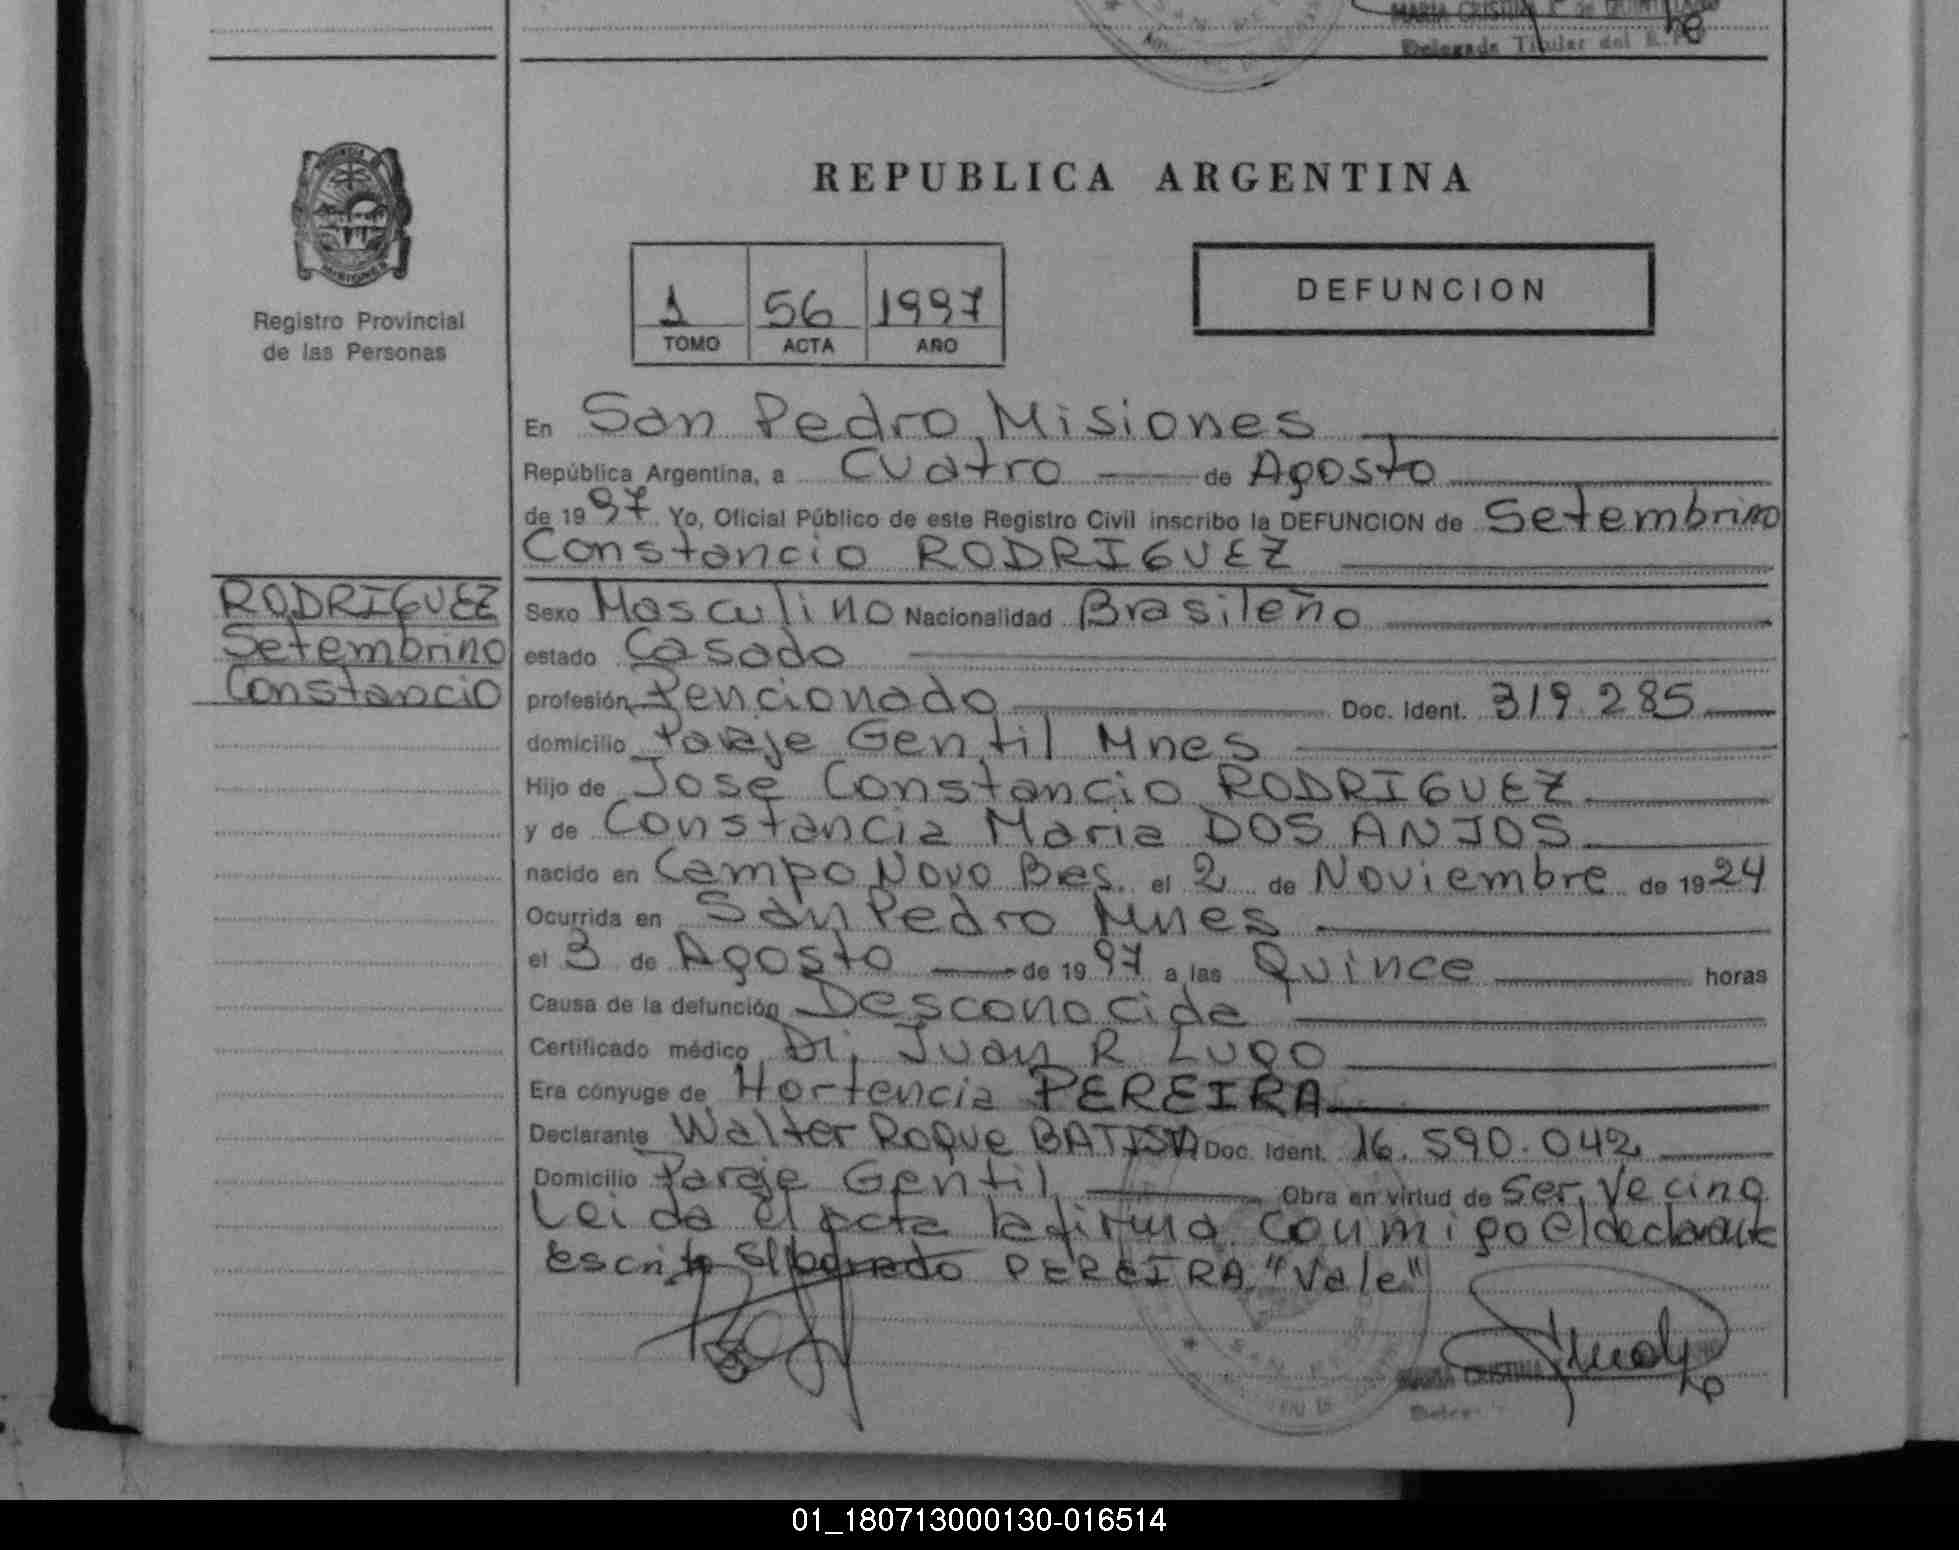 MARIA CRISTINA
Delegada Titular del R.P.
PROVINCIA DE
MISIONES
Registro Provincial
de las Personas
REPUBLICA ARGENTINA
1 56 1997
TOMO ACTA AÑO
DEFUNCION
En San Pedro, Misiones
República Argentina, a Cuatro de Agosto
de 1997 Yo, Oficial Público de este Registro Civil inscribo la DEFUNCION de Setembrino
Constancio RODRIGUEZ
RODRIGUEZ
Setembrino
Constancio
Sexo Masculino Nacionalidad Brasileño
estado Casado
profesión Pencionado Doc. Ident. 319.285
domicilio Paraje Gentil Mnes
Hijo de Jose Constancio RODRIGUEZ
y de Constancia Maria DOS ANJOS
nacido en Campo Novo Bas. el 2 de Noviembre de 1924
Ocurrida en San Pedro Mnes
el 3 de Agosto de 1997 a las Quince horas
Causa de la defunción Desconocida
Certificado médico Dr. Juan R Lugo
Era cónyuge de Hortencia PEREIRA
Declarante Walter Roque BATISTA Doc. Ident. 16.590.042
Domicilio Paraje Gentil Obra en virtud de ser, Vecino
Leida el acta la firma conmigo el declarante
escrito s/borrado PEREIRA "Vale"
SAN PEDRO
MARIA CRISTINA
01_180713000130-016514